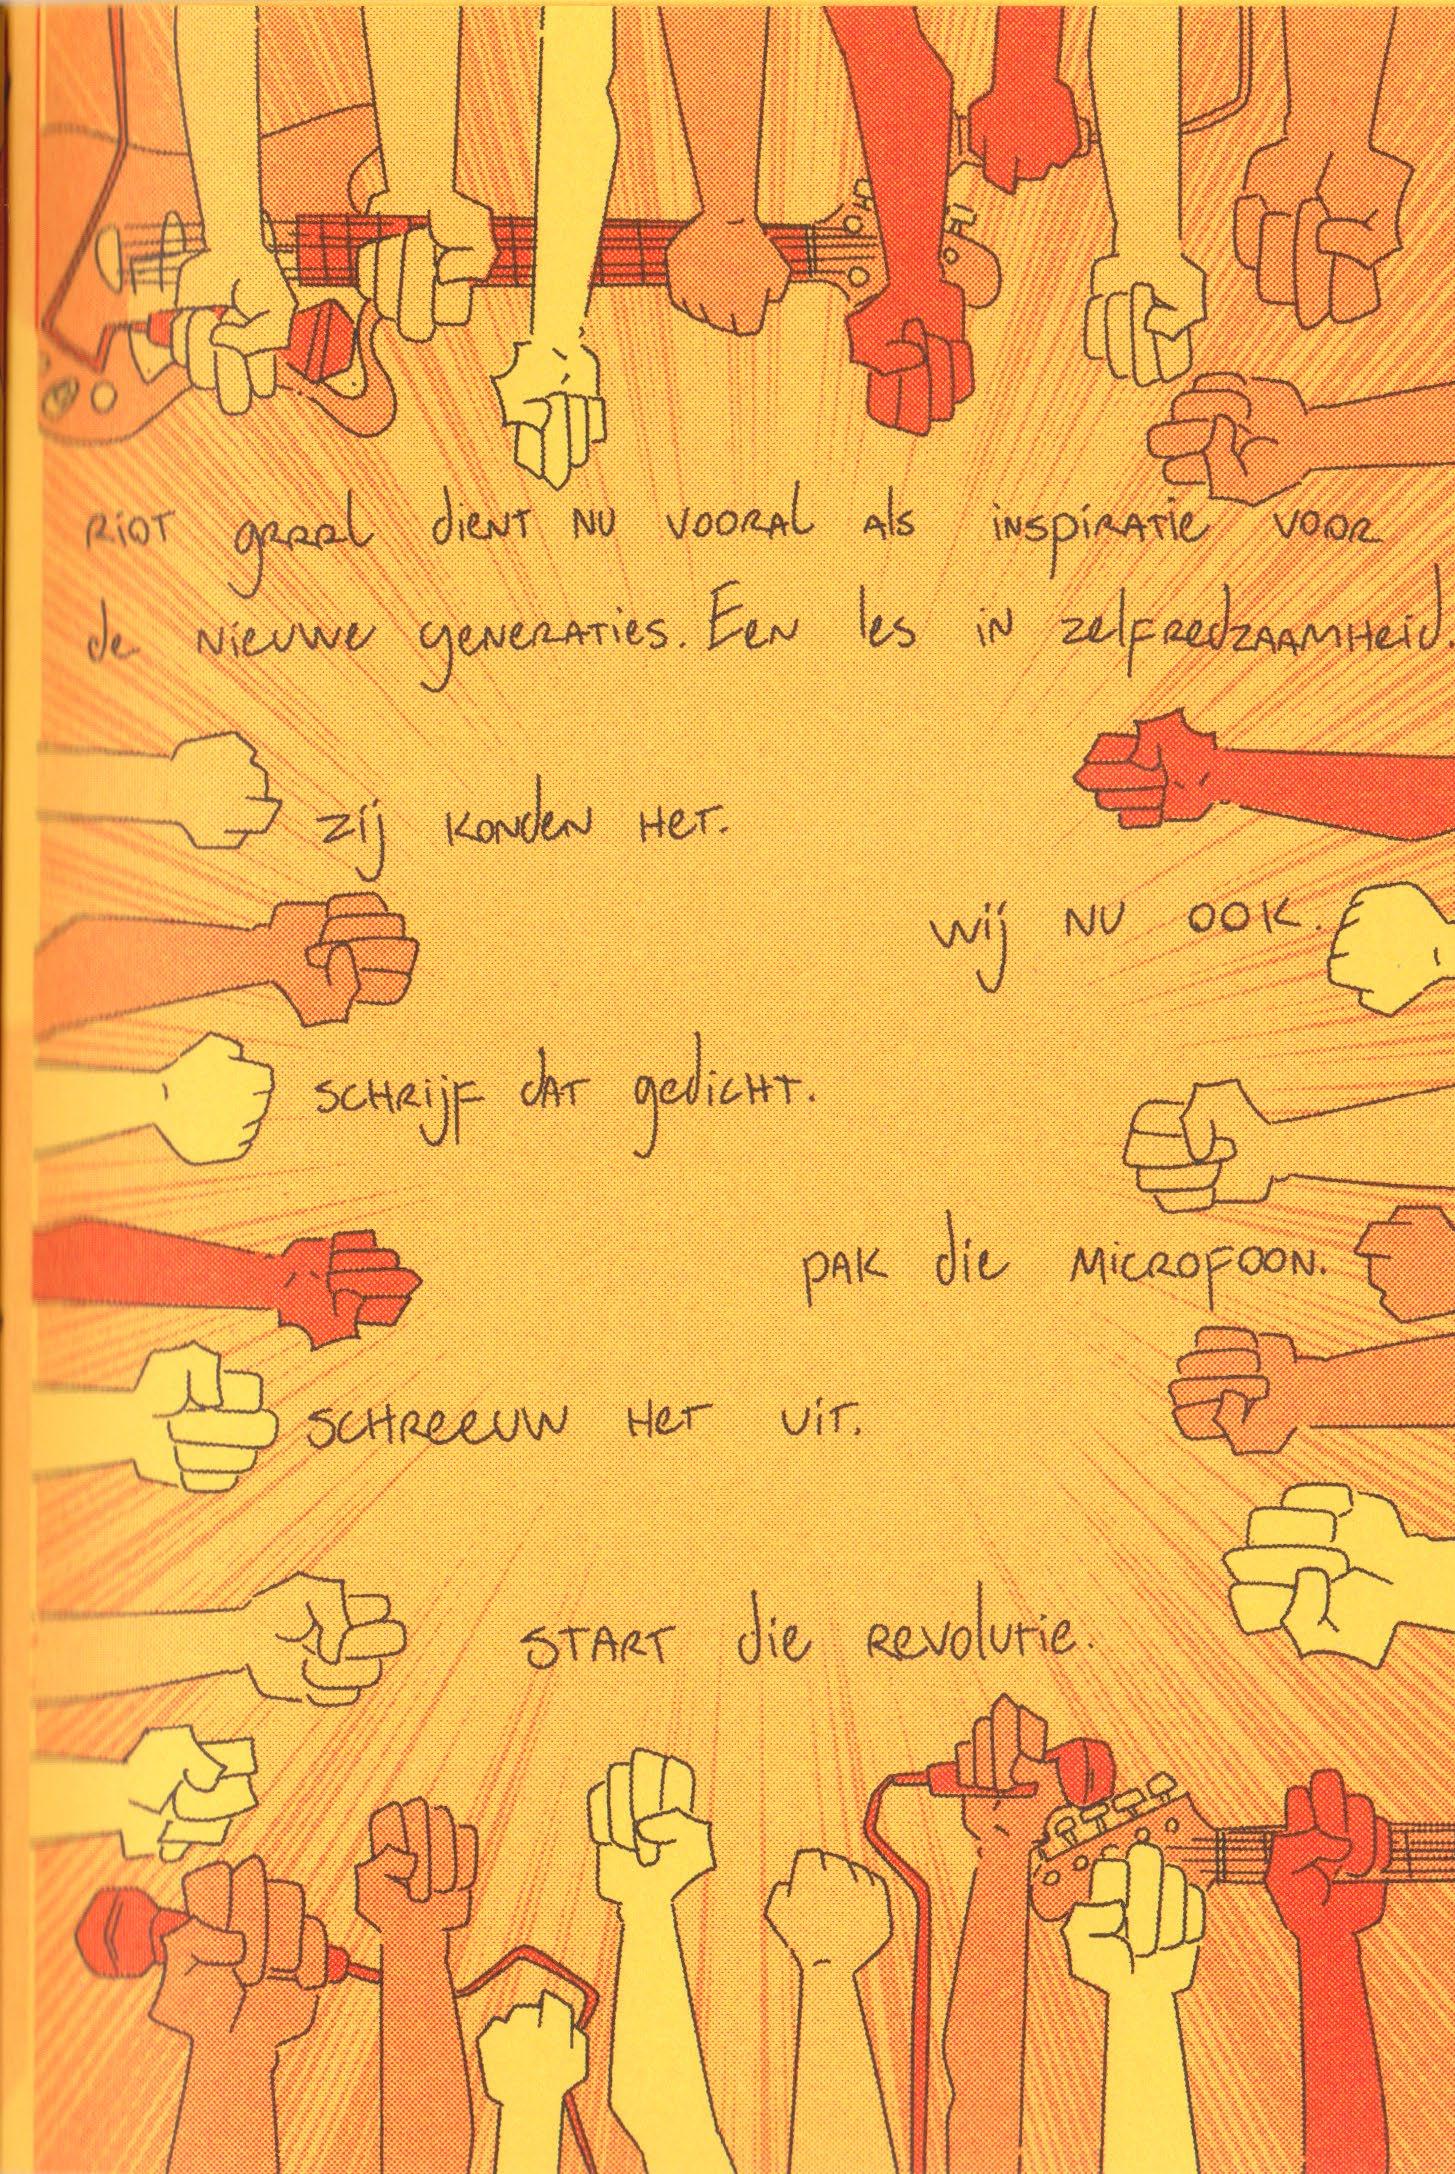 Riot grrrl dient nu vooral als inspiratie voor
de nieuwe generaties. Een les in zelfredzaamheid.
zij konden het.
wij nu ook.
schrijf dat gedicht.
pak die microfoon.
schreeuw het uit.
start die revolutie.